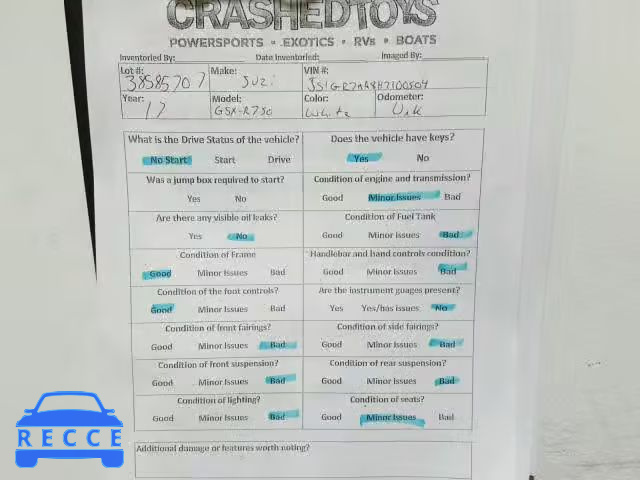 CRASHEDTOYS
POWERSPORTS • EXOTICS • RVs • BOATS
Inventoried By: Date Inventoried: Imaged By:
Lot #: 38585707 Make: Suzi VIN #: JS1GR7NA8H7100504
Year: 17 Model: GSX-R750 Color: White Odometer: Unk
What is the Drive Status of the vehicle? Does the vehicle have keys?
No Start Start Drive Yes No
Was a jump box required to start? Condition of engine and transmission?
Yes No Good Minor Issues Bad
Are there any visible oil leaks? Condition of Fuel Tank
Yes No Good Minor Issues Bad
Condition of Frame Handlebar and hand controls condition?
Good Minor Issues Bad Good Minor Issues Bad
Condition of the foot controls? Are the instrument guages present?
Good Minor Issues Bad Yes Yes/has issues No
Condition of front fairings? Condition of side fairings?
Good Minor Issues Bad Good Minor Issues Bad
Condition of front suspension? Condition of rear suspension?
Good Minor Issues Bad Good Minor Issues Bad
Condition of lighting? Condition of seats?
Good Minor Issues Bad Good Minor Issues Bad
Additional damage or features worth noting?
RECCE